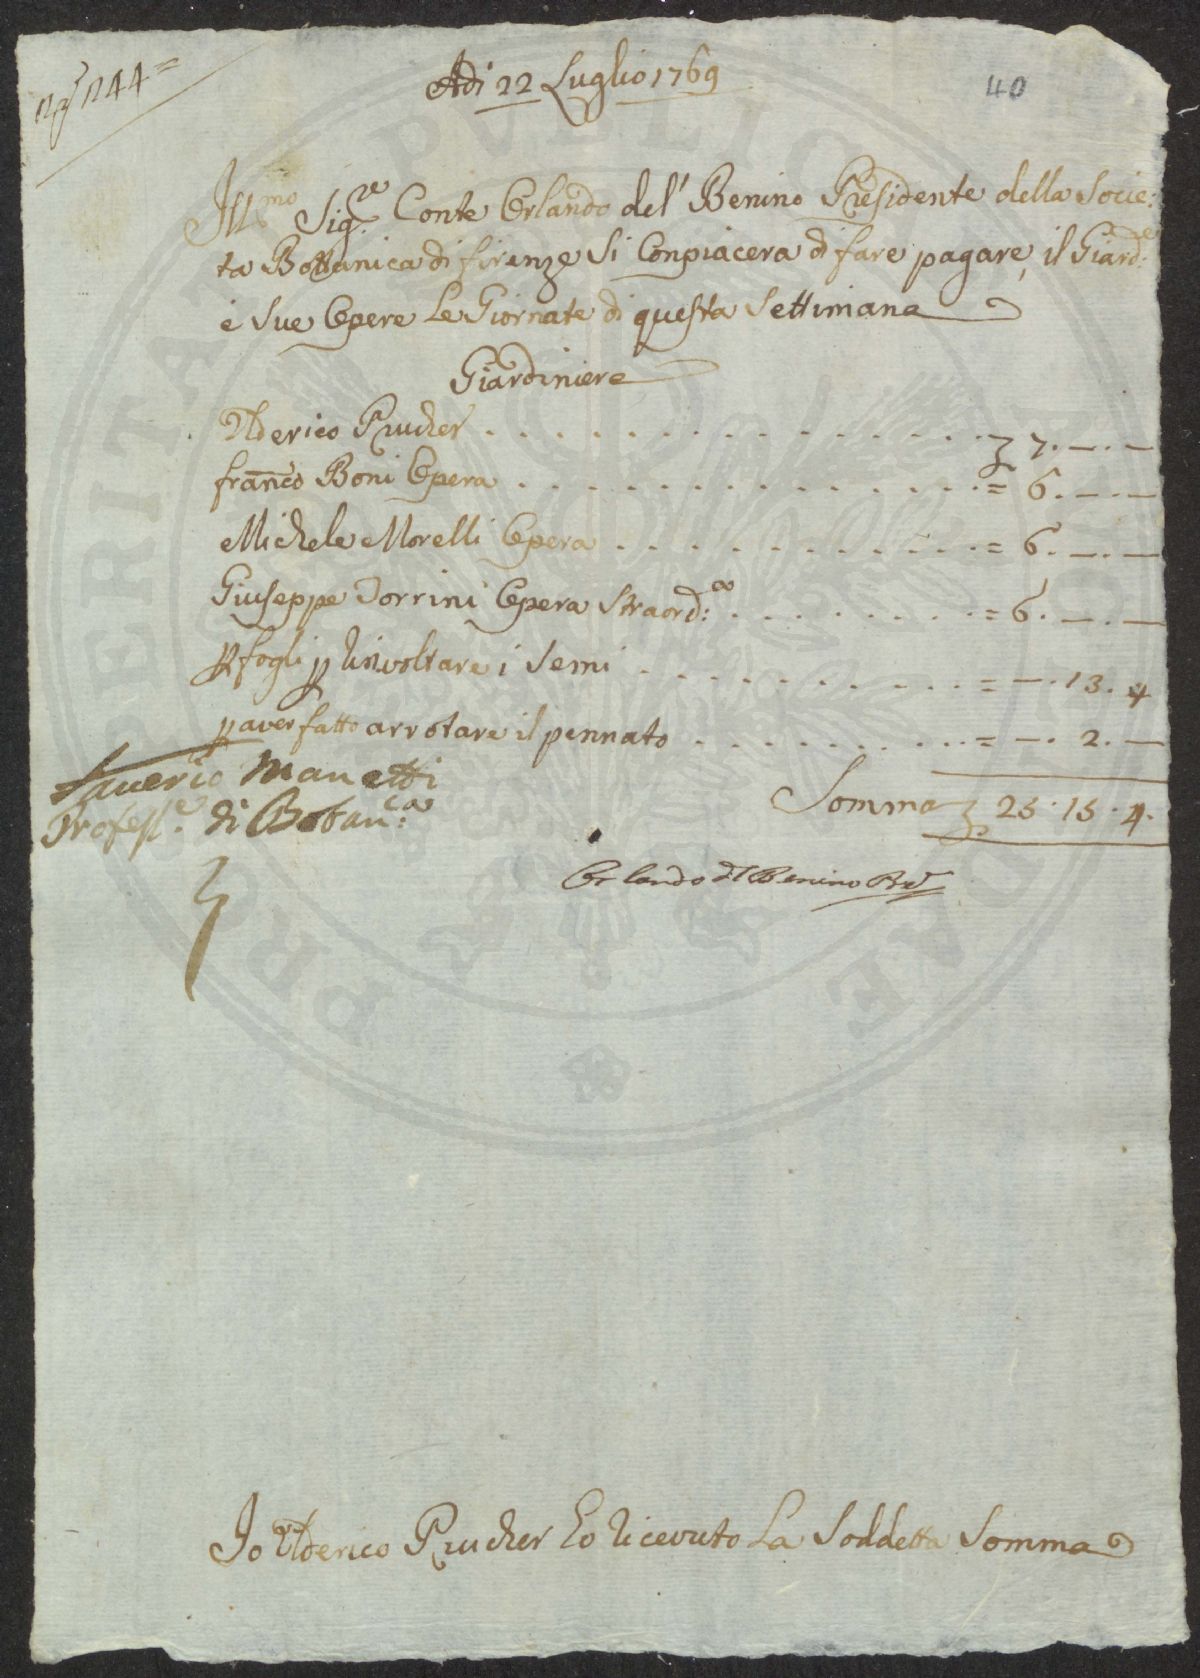 N.º 144=
Adi 22 Luglio 1769
40
Ill.mo Sig.re Conte Orlando del' Benino Presidente della Socie:
ta Bottanica di firenze Si Conpiacera di fare pagare, il Giard:e
e Sue Opere Le Giornate di questa Settimana
Giardiniere
Ulderico Prucher . . . . . . . . . . . . . . . £ 7. —. —
franco Boni Opera . . . . . . . . . . . . . . = 6. —. —
Michele Morelli Opera . . . . . . . . . . . = 6. —. —
Giuseppe Torrini Opera Straord:a . . . . . . . . = 6. —. —
p fogli p rinvoltare i Semi . . . . . . . . . . = —. 13. 4
p aver fatto arrotare il pennato . . . . . . . . . = —. 2. —
Saverio Manetti
Profess.e di Botan:ca
Somma £ 25. 15. 4.
Orlando del Benino Pred.
Io Ulderico Prucher Ho ricevuto La Soddetta Somma
PROPERITATI PVBLICAE